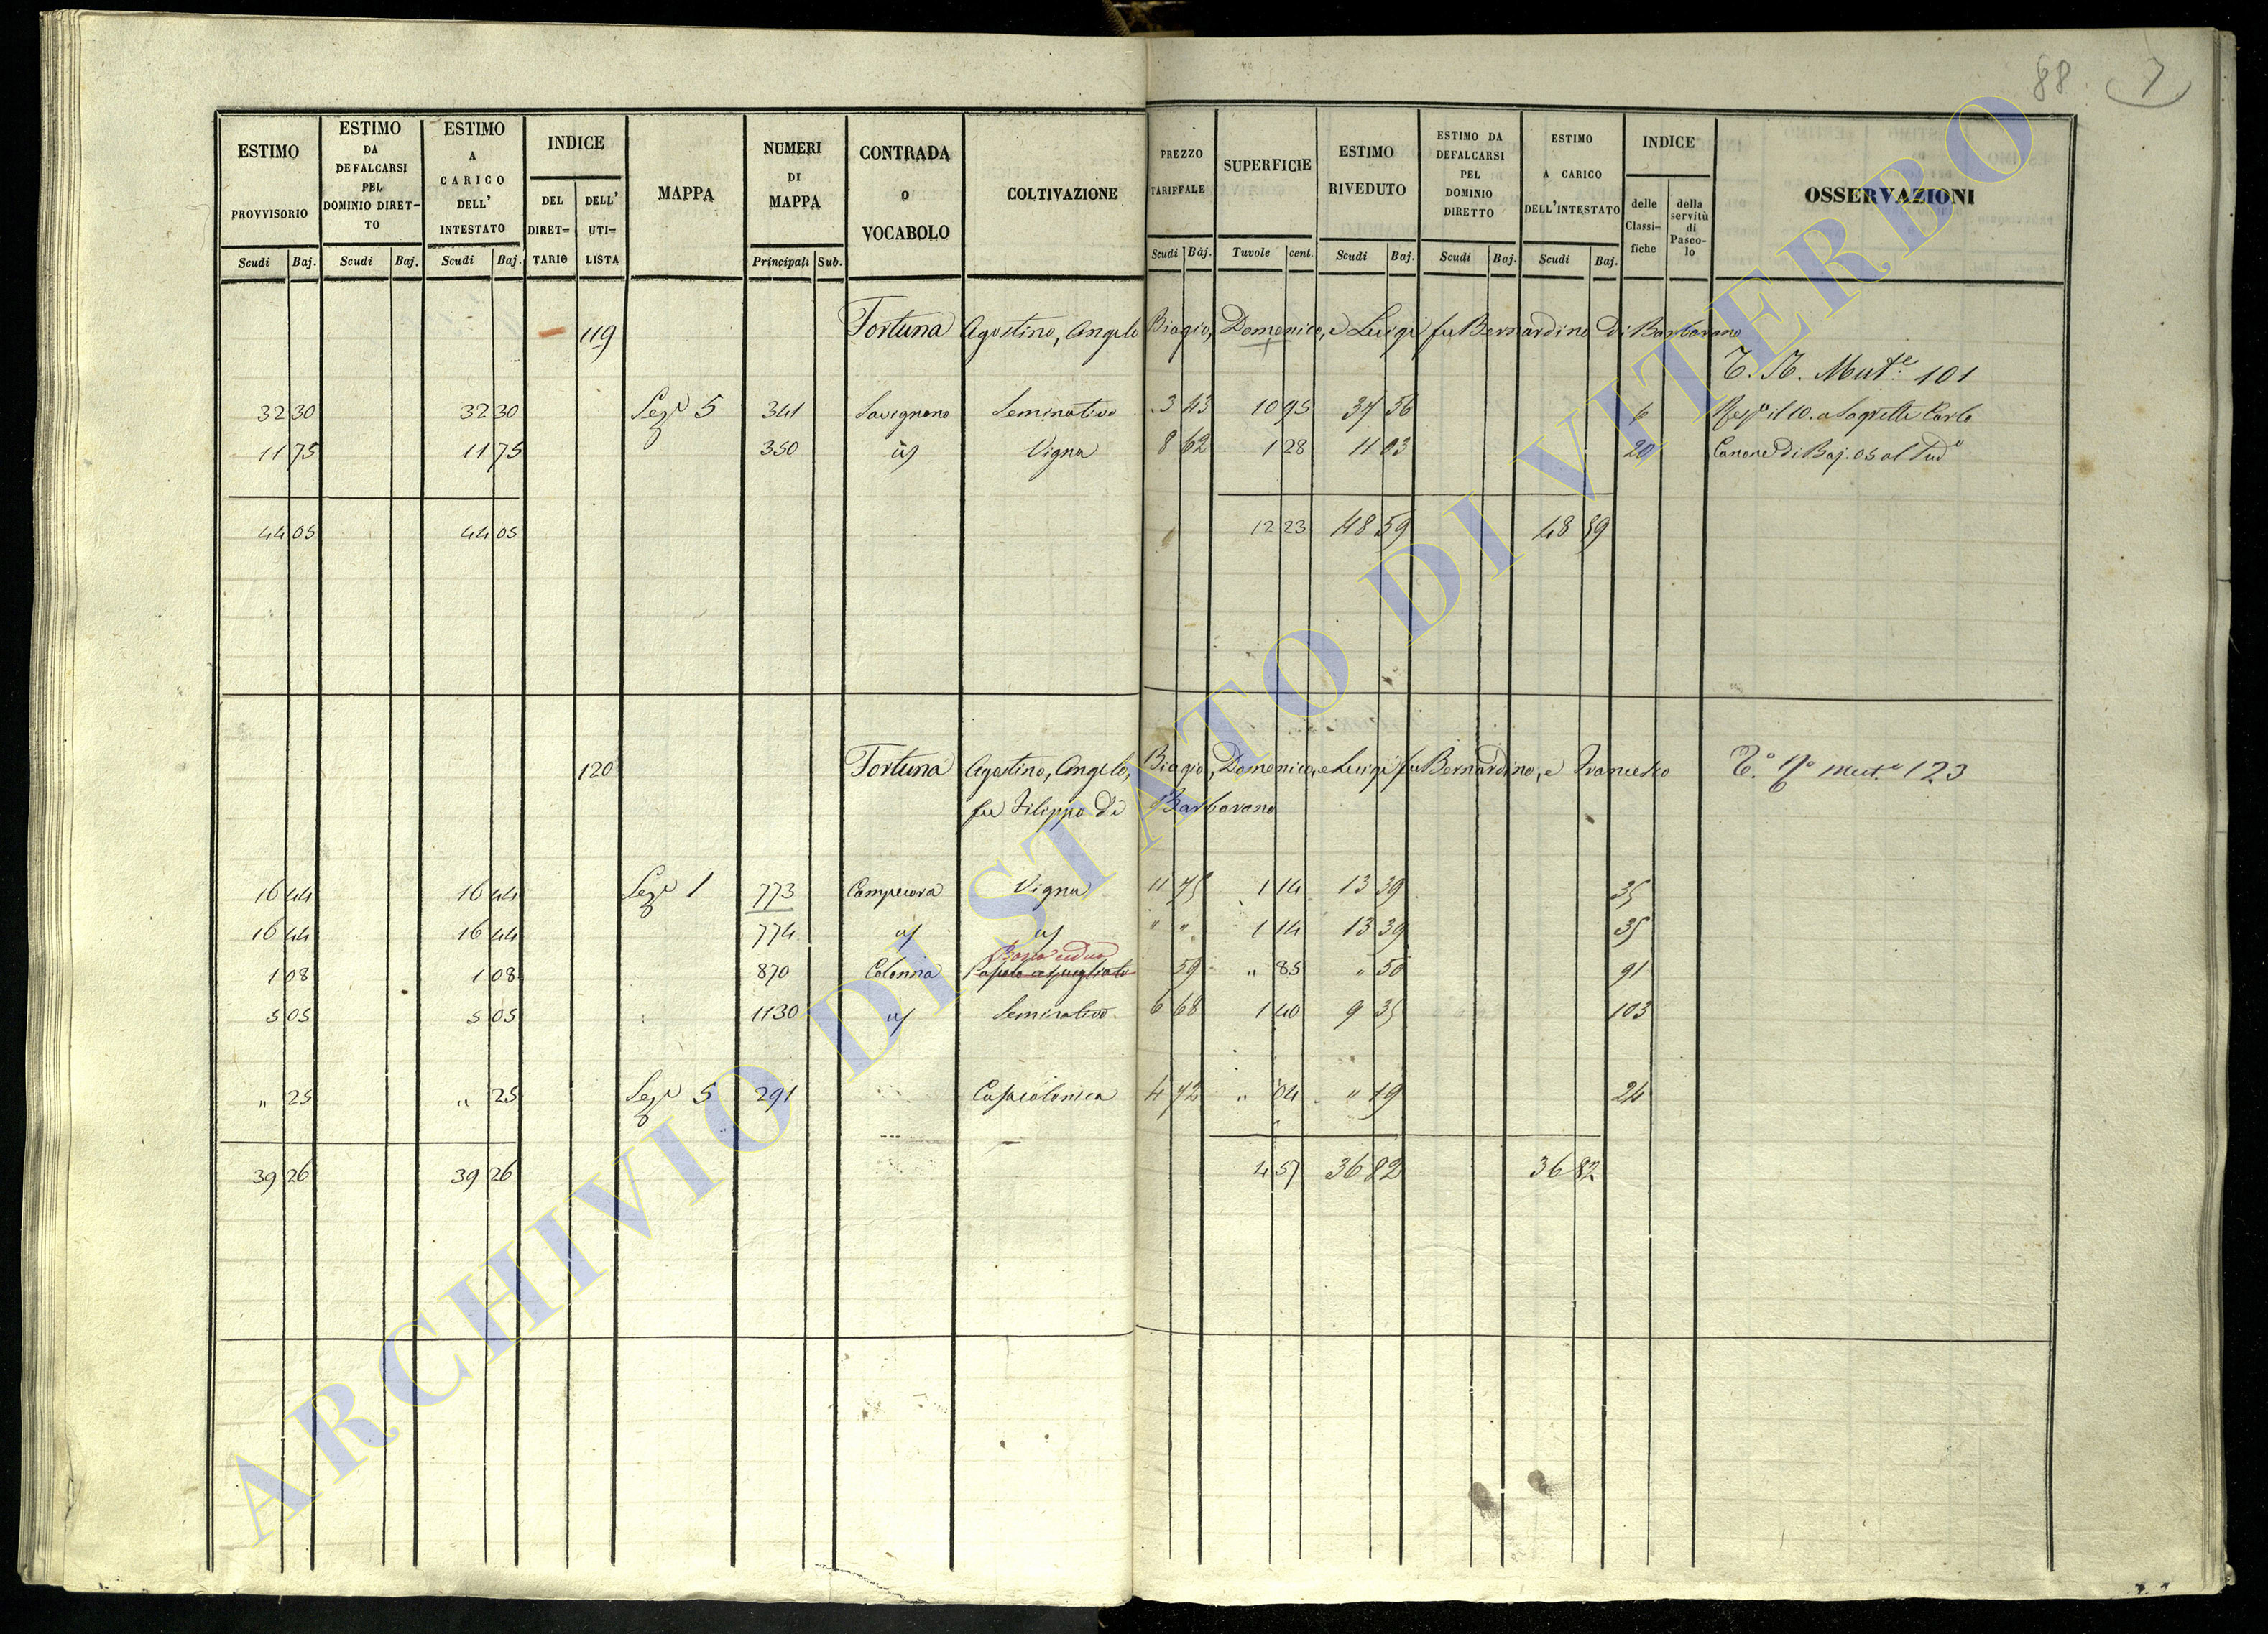 88 7
ESTIMO PROVVISORIO
ESTIMO DA DEFALCARSI PEL DOMINIO DIRET-TO
ESTIMO A CARICO DELL' INTESTATO
INDICE
DEL DIRET-TARIO
DELL' UTI-LISTA
MAPPA
NUMERI DI MAPPA
CONTRADA O VOCABOLO
COLTIVAZIONE
PREZZO TARIFFALE
SUPERFICIE
ESTIMO RIVEDUTO
ESTIMO DA DEFALCARSI PEL DOMINIO DIRETTO
ESTIMO A CARICO DELL'INTESTATO
INDICE
delle Classi-fiche
della servitù di Pasco-lo
OSSERVAZIONI
Scudi Baj. Scudi Baj. Scudi Baj. Principali Sub. Scudi Baj. Tavole cent. Scudi Baj. Scudi Baj. Scudi Baj.
119 Fortuna Agostino, Angelo Biagio, Domenico, e Luigi fu Bernardino di Barbarano
Mut.e 101
32 30 32 30 Sez.e 5 341 Savignano Seminativo 3 43 10 95 37 56 6
11 75 11 75 350 id Vigna 8 62 1 28 11 03 20 Canone di Baj. 05 al
44 05 44 05 12 23 48 59 48 59
120 Fortuna Agostino, Angelo, Biagio, Domenico, e Luigi fu Bernardino, e Francesco
Mut.e 123
fu Filippo di Barbarano
16 44 16 44 Sez.e 1 773 Vigna 11 75 1 14 13 39 35
16 44 16 44 774 id id " " 1 14 13 39 35
Bosco ceduo
1 08 1 08 870 Colonna Pascolo cespugliato 59 " 85 " 50 91
5 05 5 05 1130 id Seminativo 6 68 1 40 9 35 103
" 25 " 25 Sez.e 5 291 Casa colonica 4 72 " 04 " 19 24
39 26 39 26 4 57 36 82 36 82
ARCHIVIO DI STATO DI VITERBO